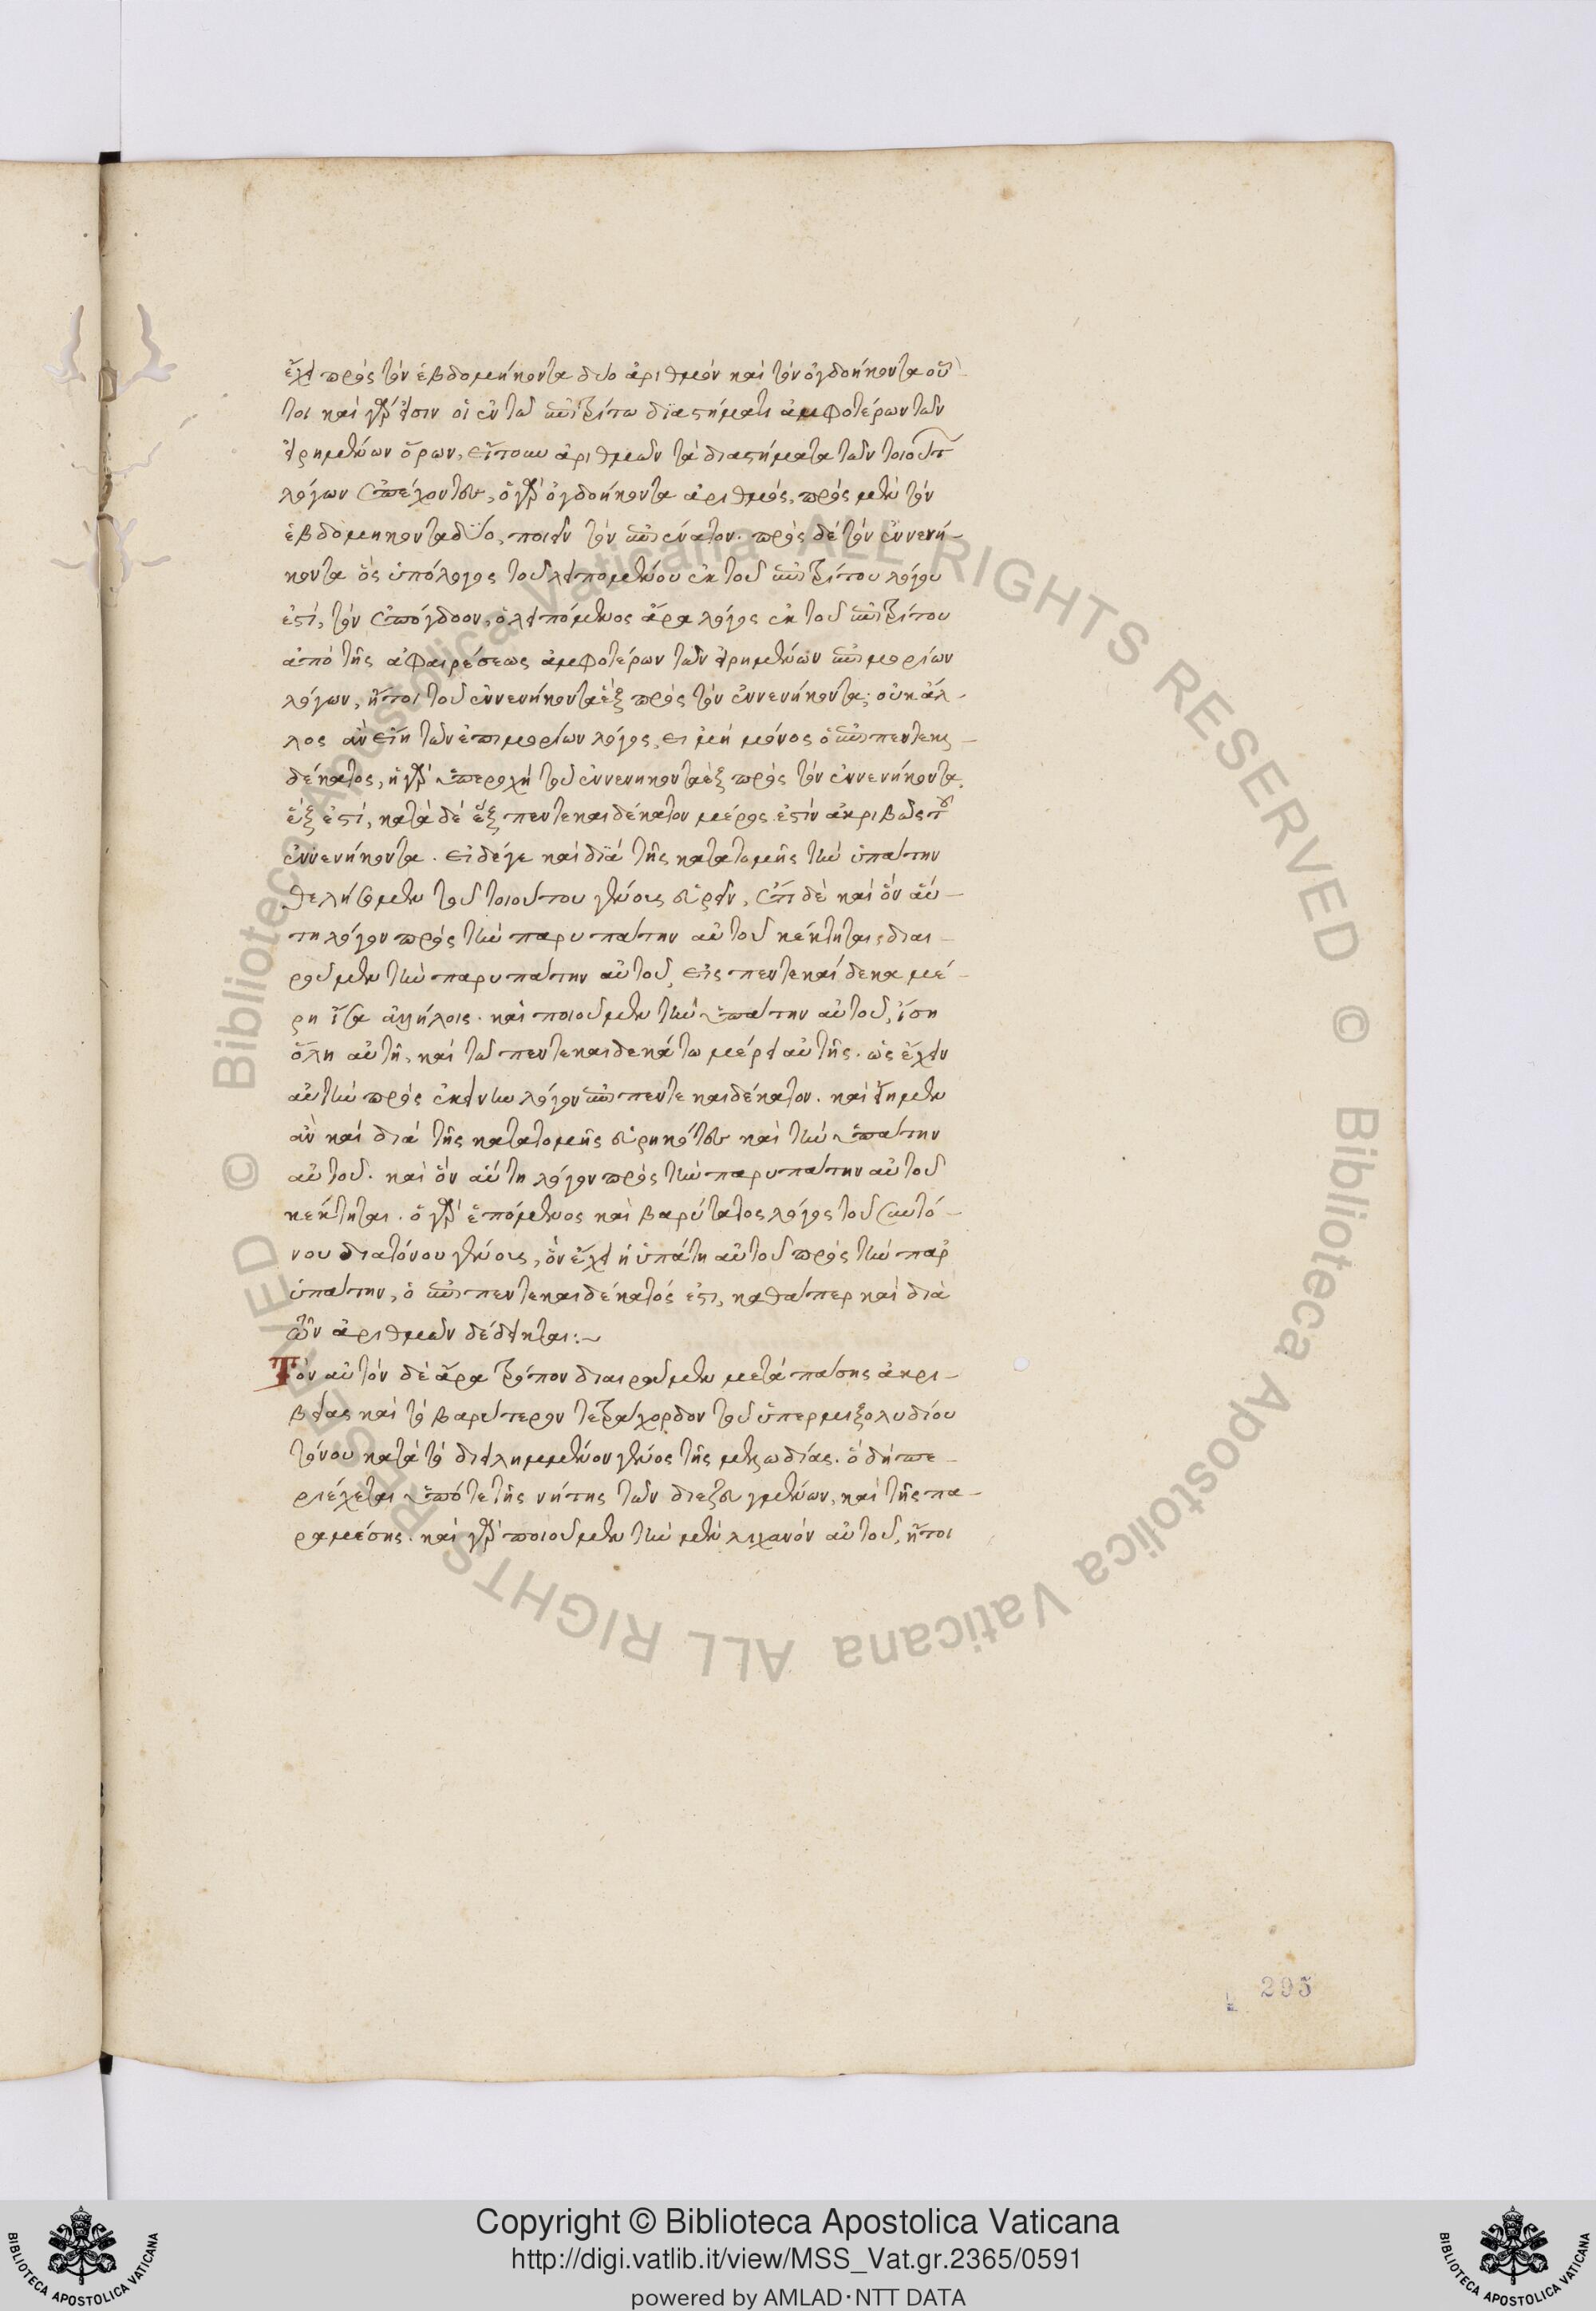 ἔχει πρὸς τὸν ἑβδομήκοντα δύο ἀριθμὸν καὶ τὸν ὀγδοήκοντα οὗ-
τοι καὶ γάρ εἰσιν οἱ ἐν τῶ ἐπιτρίτω διαστήματι ἀμφοτέρων τῶν
εἰρημένων ὅρων, εἴπουν ἀριθμῶν τὰ διαστήματα τῶν τοιούτ
λόγων ἐπέχοντες, ὁ γὰρ ὀγδοήκοντα ἀριθμὸς, πρὸς μὲν τὸν
ἑβδομηκονταδύο, ποιεῖ τὸν ἐπιένατον. πρὸς δὲ τὸν ἐννενή-
κοντα ὃς ὑπόλογος τοῦ λειπομένου ἐκ τοῦ ἐπιτρίτου λόγου
ἐστὶ, τὸν ἐπόγδοον, ὁ λειπόμενος ἄρα λόγος ἐκ τοῦ ἐπιτρίτου
ἀπὸ τῆς ἀφαιρέσεως ἀμφοτέρων τῶν εἰρημένων ἐπιμορίων
λόγων, ἤτοι τοῦ ἐννενήκονταὲξ πρὸς τὸν ἐννενήκοντα; οὐκ ἄλ-
λος ἂν εἴη τῶν ἐπιμορίων λόγος, εἰ μὴ μόνος ὁ ἐπιπεντεκαι-
δέκατος, ἡ γὰρ ὑπεροχὴ τοῦ ἐννενηκονταὲξ πρὸς τὸν ἐννενήκοντα,
ἕξ ἐστί, κατὰ δὲ ἕξ πεντεκαιδέκατον μέρος ἐστὶν ἀκριβῶς τοῦ
ἐννενήκοντα. εἰ δέγε καὶ διὰ τῆς κατατομῆς τὴν ὑπάτην
θελήσομεν τοῦ τοιούτου γένους εὑρεῖν, ἔτι δὲ καὶ ὃν αὕ-
τη λόγον πρὸς τὴν παρυπάτην αὐτοῦ κέκτηται, διαι-
ροῦμεν τὴν παρυπάτην αὐτοῦ, εἰς πεντεκαίδεκα μέ-
ρη ἴσα ἀλλήλοις. καὶ ποιοῦμεν τὴν ὑπάτην αὐτοῦ, ἴση
ὅλη αὐτῆ, καὶ τῶ πεντεκαιδεκάτω μέρει αὐτῆς. ὡς ἔχειν
αὐτὴν πρὸς ἐκείνην λόγον ἐπιπεντεκαιδέκατον. καὶ εἴημεν
ἂν καὶ διὰ τῆς κατατομῆς εὑρηκότες καὶ τὴν ὑπάτην
αὐτοῦ. καὶ ὃν αὕτη λόγον πρὸς τὴν παρυπάτην αὐτοῦ
κέκτηται. ὁ γὰρ ἑπόμενος καὶ βαρύτατος λόγος τοῦ ἐντό-
νου διατόνου γένους, ὃν ἔχει ἡ ὑπάτη αὐτοῦ πρὸς τὴν παρ
ὑπάτην, ὁ ἐπιπεντεκαιδέκατός ἐστι, καθάπερ καὶ διὰ
τῶν ἀριθμῶν δέδεικται:~
Τὸν αὐτὸν δὲ ἄρα τρόπον διαιροῦμεν μετὰ πάσης ἀκρι-
βείας καὶ τὸ βαρύτερον τετράχορδον τοῦ ὑπερμιξολυδίου
τόνου κατὰ τὸ διειλημμένον γένος τῆς μελωδίας. ὃ δὴ πε-
ριέχεται ὑπό τε τῆς νήτης τῶν διεζευγμένων, καὶ τῆς πα-
ραμέσης. καὶ γὰρ ποιοῦμεν τὴν μὲν λιχανὸν αὐτοῦ, ἤτοι
295
Copyright © Biblioteca Apostolica Vaticana
http://digi.vatlib.it/view/MSS_Vat.gr.2365/0591
powered by AMLAD·NTT DATA
BIBLIOTECA APOSTOLICA VATICANA
BIBLIOTECA APOSTOLICA VATICANA
© Biblioteca Apostolica Vaticana ALL RIGHTS RESERVED © Biblioteca Apostolica Vaticana ALL RIGHTS RESERVED